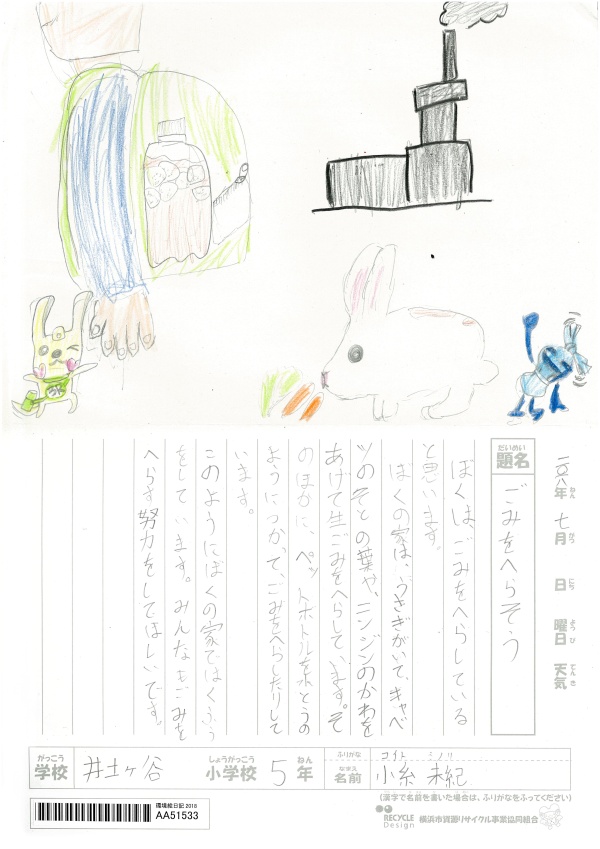 二〇一八年 七月 日 曜日 天気
ねん がつ にち ようび てんき
だいめい
題名
ごみをへらそう
ぼくは、ごみをへらしている
と思います。
ぼくの家は、うさぎがいて、キャベ
ツのそとの葉や、ニンジンのかわを
あげて生ごみをへらしています。そ
のほかに、ペットボトルを水とうの
ようにつかって、ごみをへらしたりして
います。
このようにぼくの家ではくふう
をしています。みんなもごみを
へらす努力をしてほしいです。
がっこう
学校
井土ヶ谷
しょうがっこう
小学校
5
ねん
年
ふりがな
コイト ミノリ
なまえ
名前
小糸 未紀
(漢字で名前を書いた場合は、ふりがなをふってください)
環境絵日記 2018
AA51533
RECYCLE
Design
横浜市資源リサイクル事業協同組合